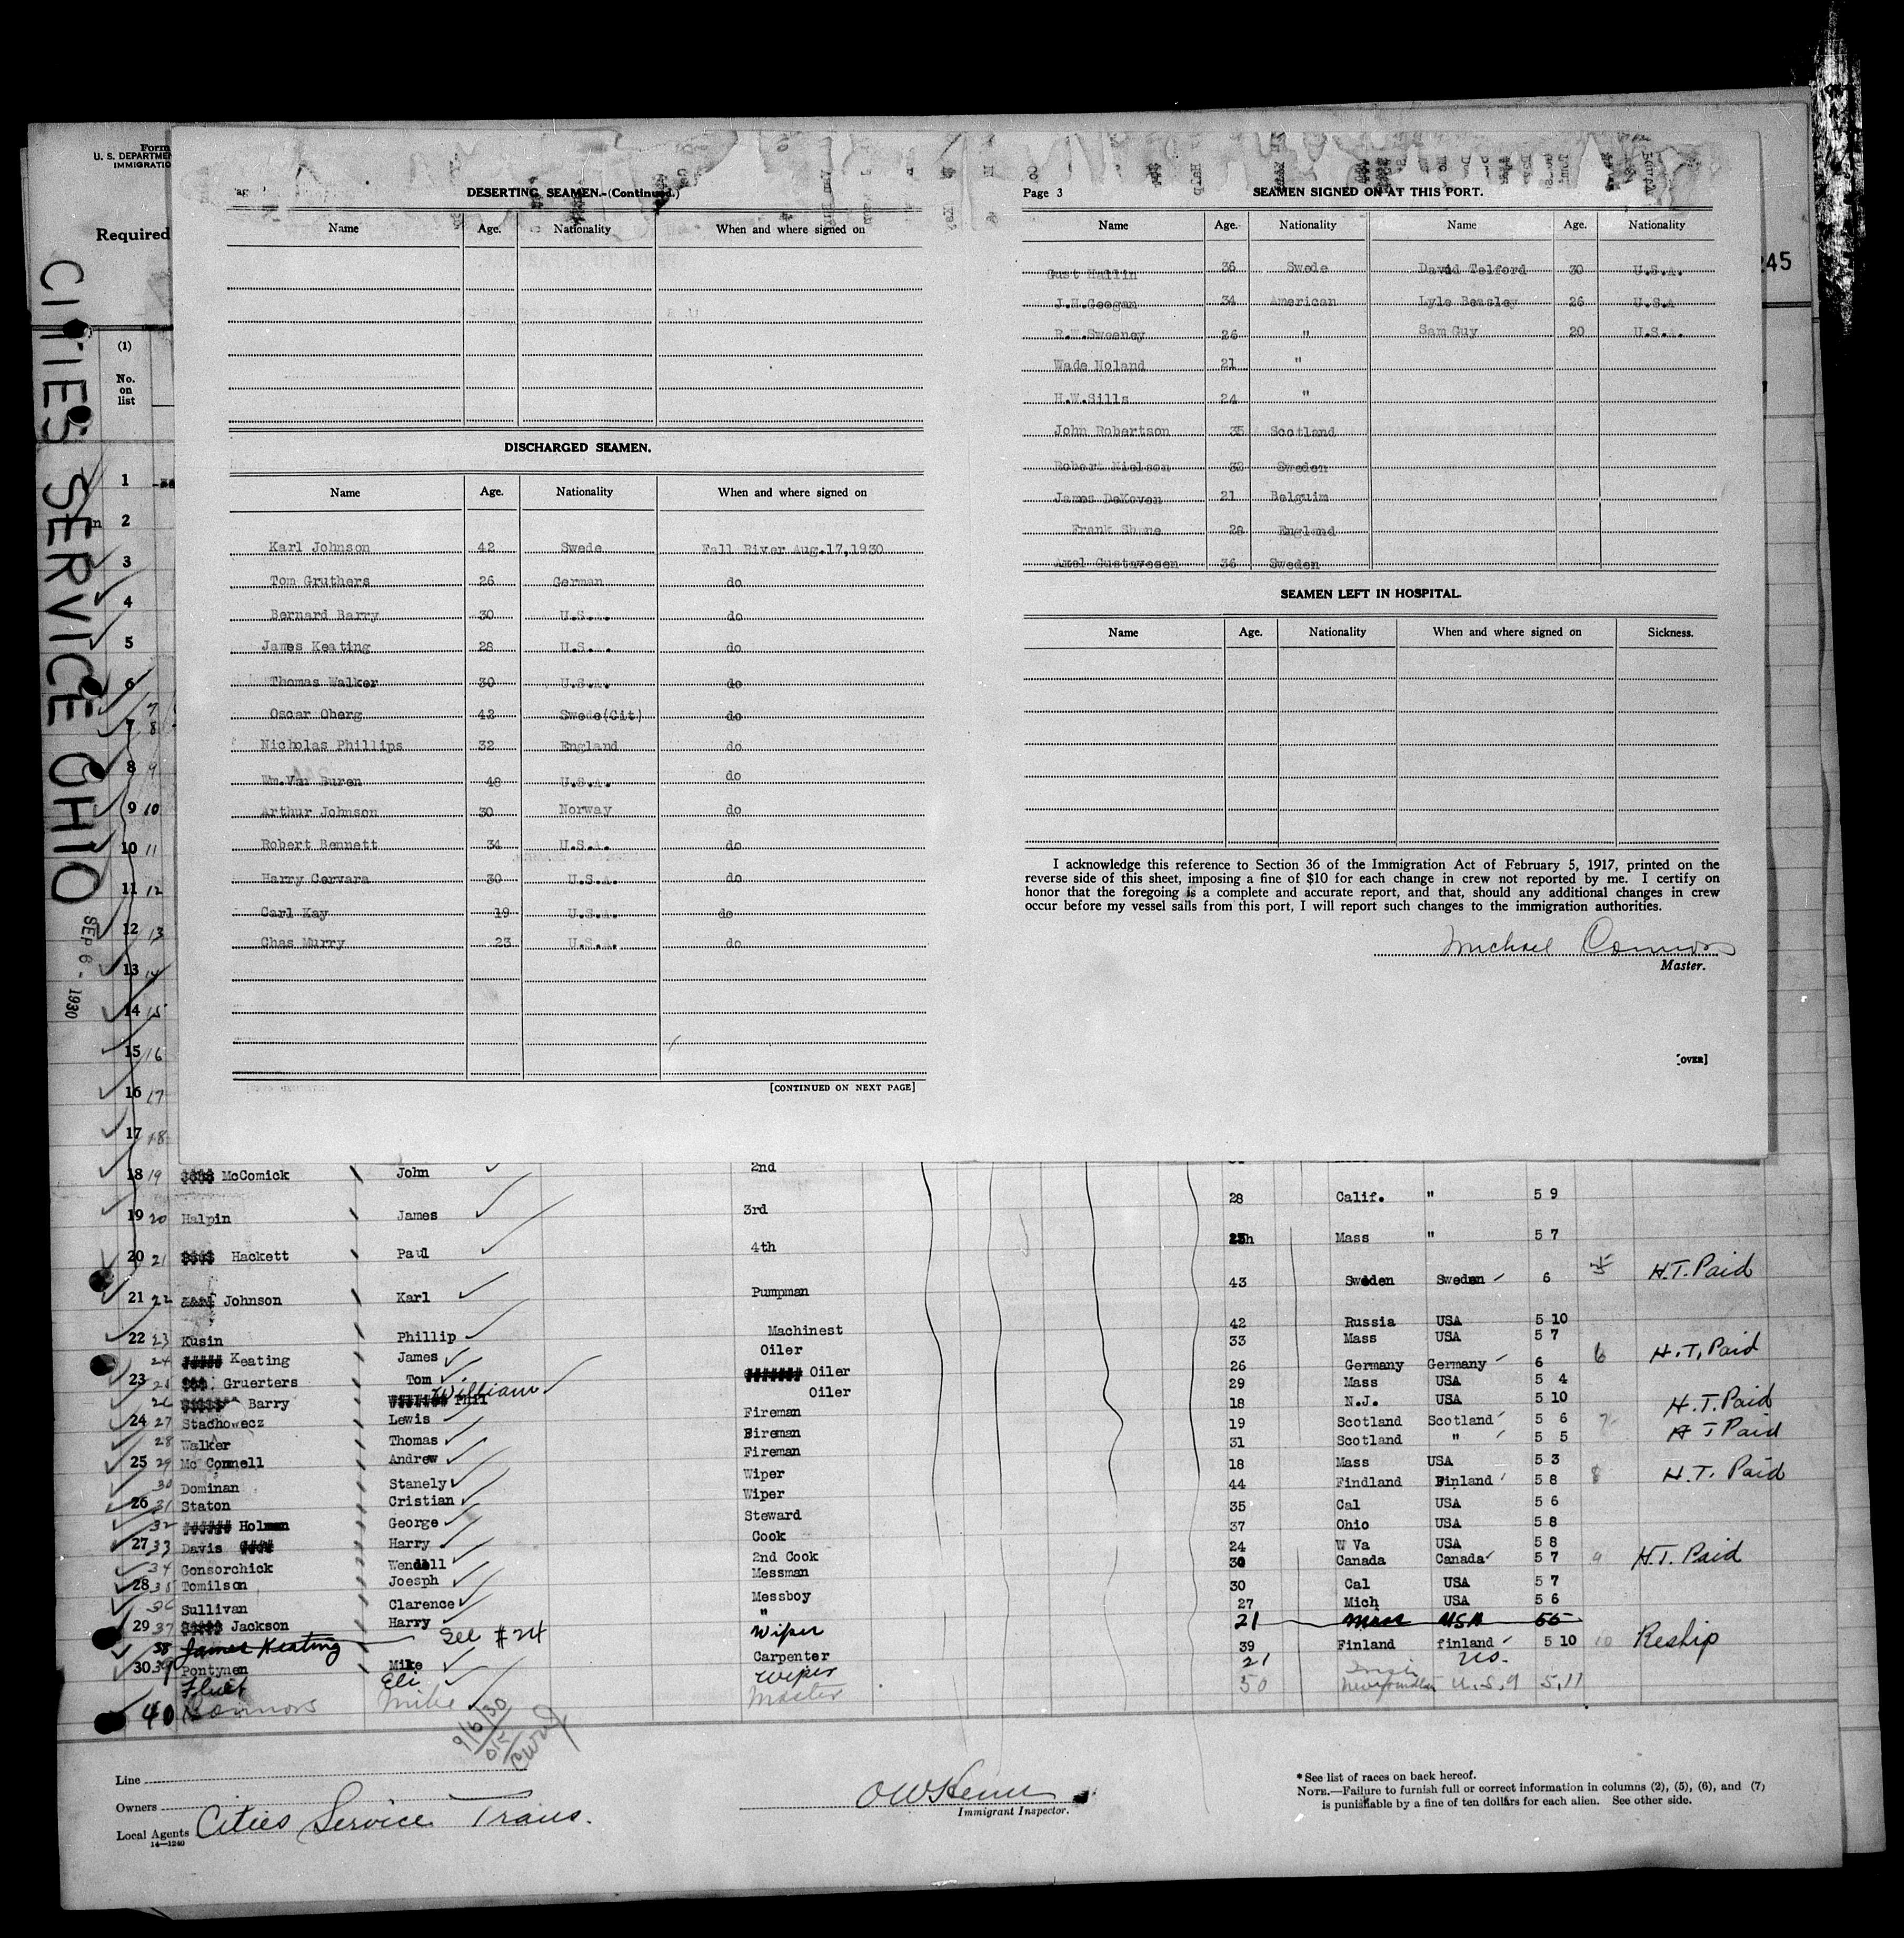 Form
U. S. DEPARTMEN
IMMIGRATIO
Required
245
CITIES SERVICE OHIO
SEP 6 - 1930
(1)
No.
on
list
DESERTING SEAMEN.-(Continued.)
Name Age. Nationality When and where signed on
DISCHARGED SEAMEN.
Name Age. Nationality When and where signed on
Karl Johnson 42 Swede Fall River Aug.17,1930
Tom Gruthers 26 German do
Bernard Barry 30 U.S.A. do
James Keating 28 U.S. . do
Thomas Walker 30 U.S.A. do
Oscar Oberg 42 Swede(Cit) do
Nicholas Phillips 32 England do
Wm.Van Buren 48 U.S.A. do
Arthur Johnson 30 Norway do
Robert Bennett 34 U.S.A. do
Harry Cervara 30 U.S.A. do
Carl Kay 19 U.S.A. do
Chas Murry 23 U.S.A. do
[CONTINUED ON NEXT PAGE]
Page 3
SEAMEN SIGNED ON AT THIS PORT.
Name Age. Nationality Name Age. Nationality
Gust Hallin 36 Swede David Telford 30 U.S.A.
J.H.Geegan 34 American Lyle Beasley 26 U.S.A
R.W.Sweeney 26 " Sam Guy 20 U.S.A.
Wade Noland 21 "
H.W.Sills 24 "
John Robertson 35 Scotland
Robert Nielson 32 Sweden
James DeKoven 21 Belguim
Frank Shane 28 England
Axel Gustavesen 36 Sweden
SEAMEN LEFT IN HOSPITAL.
Name Age. Nationality When and where signed on Sickness.
I acknowledge this reference to Section 36 of the Immigration Act of February 5, 1917, printed on the
reverse side of this sheet, imposing a fine of $10 for each change in crew not reported by me. I certify on
honor that the foregoing is a complete and accurate report, and that, should any additional changes in crew
occur before my vessel sails from this port, I will report such changes to the immigration authorities.
Michael Connors
Master.
[OVER]
1
2
3
4
5
6
7 7 8
8 9
9 10
10 11
11 12
12 13
13 14
14 15
15 16
16 17
17 18
18 19 McComick John 2nd
19 20 Halpin James 3rd 28 Calif. " 5 9
20 21 Hackett Paul 4th Mass " 5 7
21 22 Johnson Karl Pumpman 43 Sweden Sweden 6 5 H.T. Paid
22 23 Kusin Phillip Machinest 42 Russia USA 5 10
24 Keating James Oiler 33 Mass USA 5 7
23 25 Gruerters Tom Oiler 26 Germany Germany 6 6 H.T. Paid
26 Barry William Oiler 29 Mass USA 5 4
24 27 Stachowecz Lewis Fireman 18 N.J. USA 5 10
28 Walker Thomas Fireman 19 Scotland Scotland 5 6 7 H.T. Paid
25 29 Mc Connell Andrew Fireman 31 Scotland " 5 5 H T Paid
30 Dominan Stanely Wiper 18 Mass USA 5 3
26 31 Staton Cristian Wiper 44 Findland Finland 5 8 8 H.T. Paid
32 Holman George Steward 35 Cal USA 5 6
27 33 Davis Harry Cook 37 Ohio USA 5 8
34 Gonsorchick Wendell 2nd Cook 24 W Va USA 5 8
28 35 Tomilson Joesph Messman 30 Canada Canada 5 7 9 H.T. Paid
36 Sullivan Clarence Messboy 30 Cal USA 5 7
29 37 Jackson Harry " 27 Mich USA 5 6
38 James Keating See #24 Wiper 21 Mass USA 55
30 39 Pontynen Mike Carpenter 39 Finland finland 5 10 10 Reship
Eli Wiper 21 U.S.
40 Connors Mike Master 50 U.S.A 5,11
9/6/30
OK
Line
Owners
Local Agents Cities Service Trans.
14—1240
Immigrant Inspector.
* See list of races on back hereof.
NOTE.—Failure to furnish full or correct information in columns (2), (5), (6), and (7)
is punishable by a fine of ten dollars for each alien. See other side.